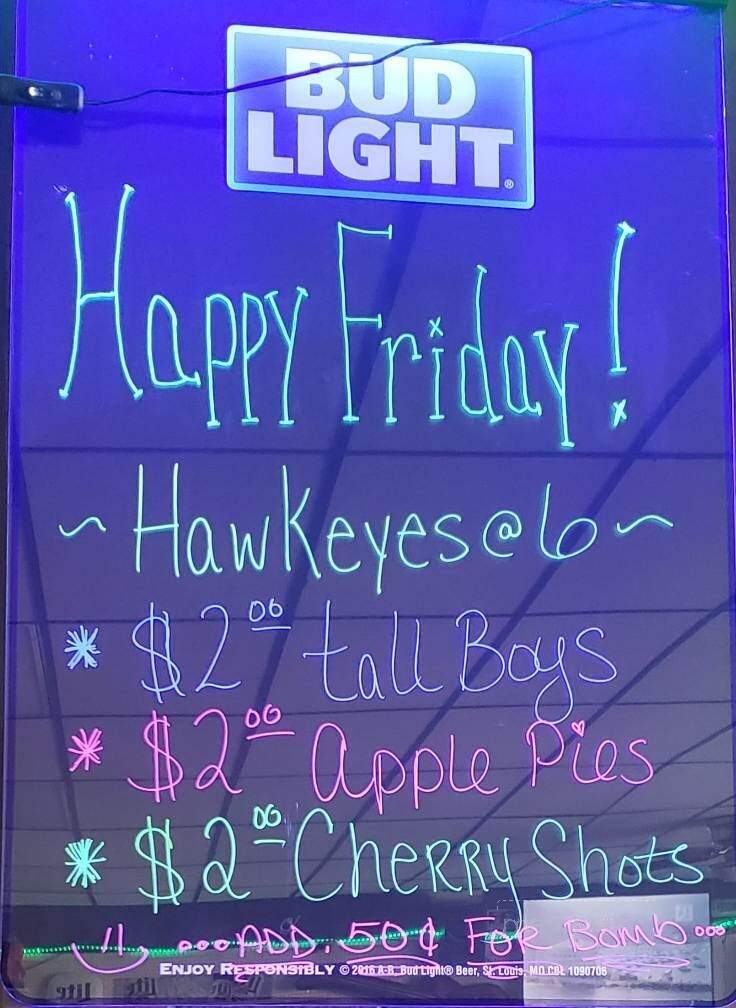 BUD
LIGHT
Happy Friday!
~ Hawkeyes @ 6 ~
* $2.00 tall Boys
* $2.00 Apple Pies
* $2.00 Cherry Shots
...ADD .50¢ For Bomb...
ENJOY RESPONSIBLY © 2016 A-B, Bud Light® Beer, St. Louis, MO CBL 1090706